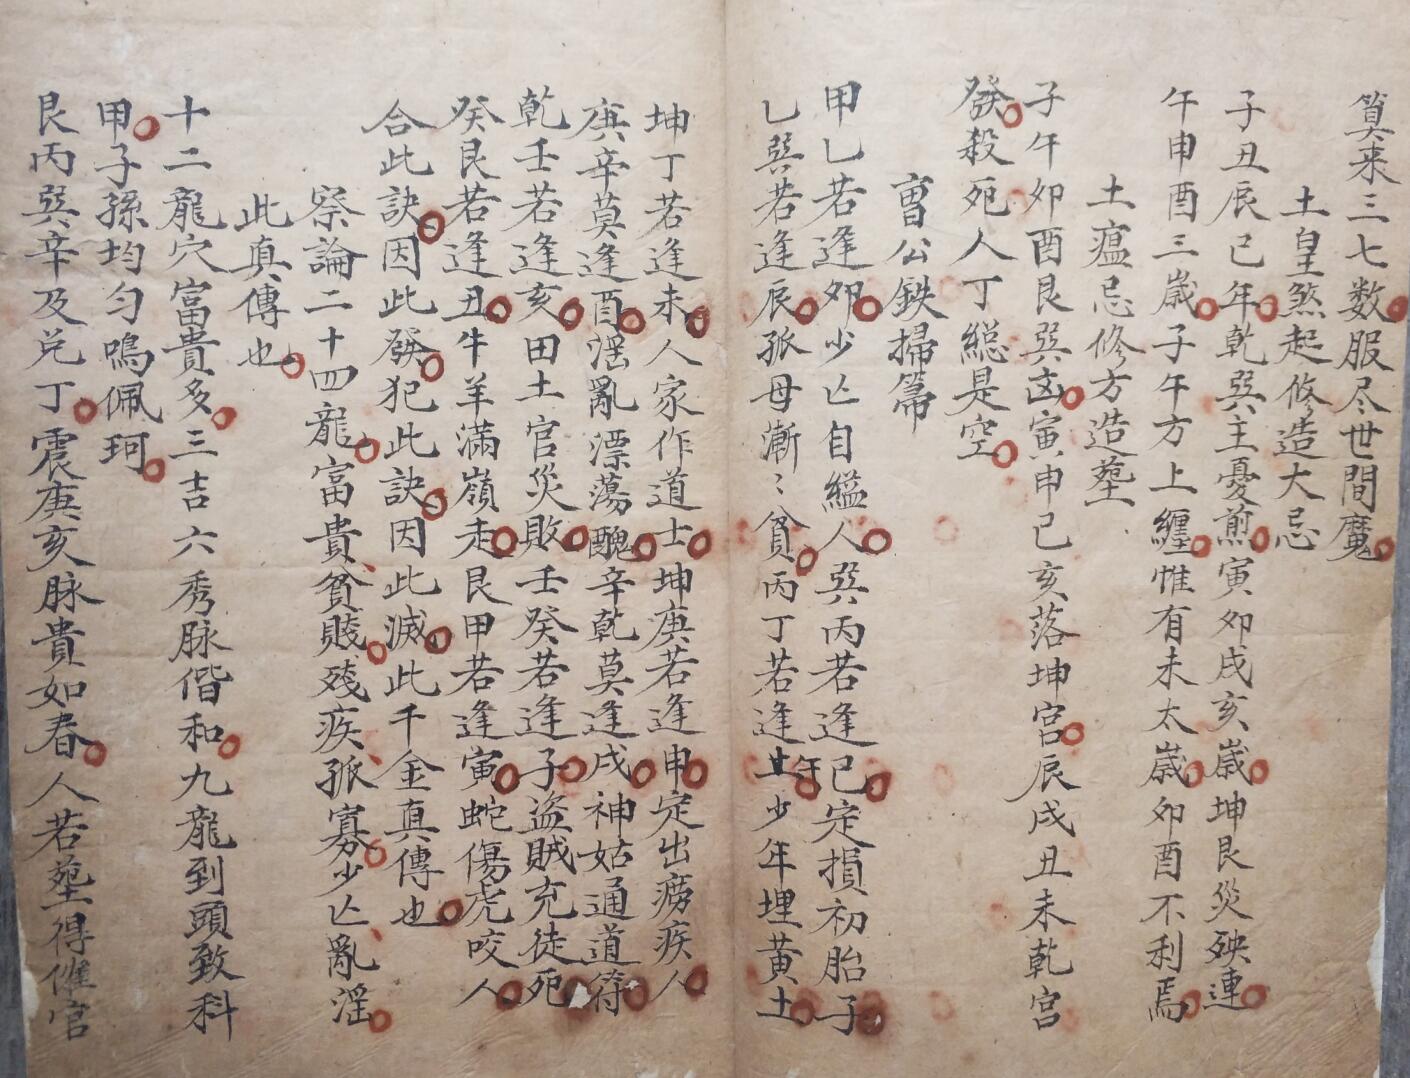 算来三七数服尽世間魔
土皇煞起修造大忌
子丑辰巳年乾巽主憂煎寅卯戌亥歲坤艮災殃連
午申酉三歲子午方上纏惟有未太歲卯酉不利焉
土瘟忌修方造塟
子午卯酉艮巽凶寅申巳亥落坤宮辰戌丑未乾宮
發殺死人丁縂是空
曺公鉄掃箒
甲乙若逢卯少亡自縊人巽丙若逢巳定損初胎子
乙巽若逢辰孤母漸〻貧丙丁若逢午少年埋黄土
坤丁若逢未人家作道士坤庚若逢申定出痨疾人
庚辛莫逢酉淫亂漂蕩醜辛乾莫逢戌神姑通道符
乾壬若逢亥田土官災敗壬癸若逢子盗賊充徒死
癸艮若逢丑牛羊滿嶺走艮甲若逢寅蛇傷虎咬人
合此訣因此發犯此訣因此滅此千金真傳也
察論二十四龍富貴貧賤殘疾孤寡少亡亂淫
此真傳也
十二龍穴富貴多三吉六秀脉偕和九龍到頭致科
甲子孫均匀鳴佩珂
艮丙巽辛及兑丁震庚亥脉貴如春人若塟得催官